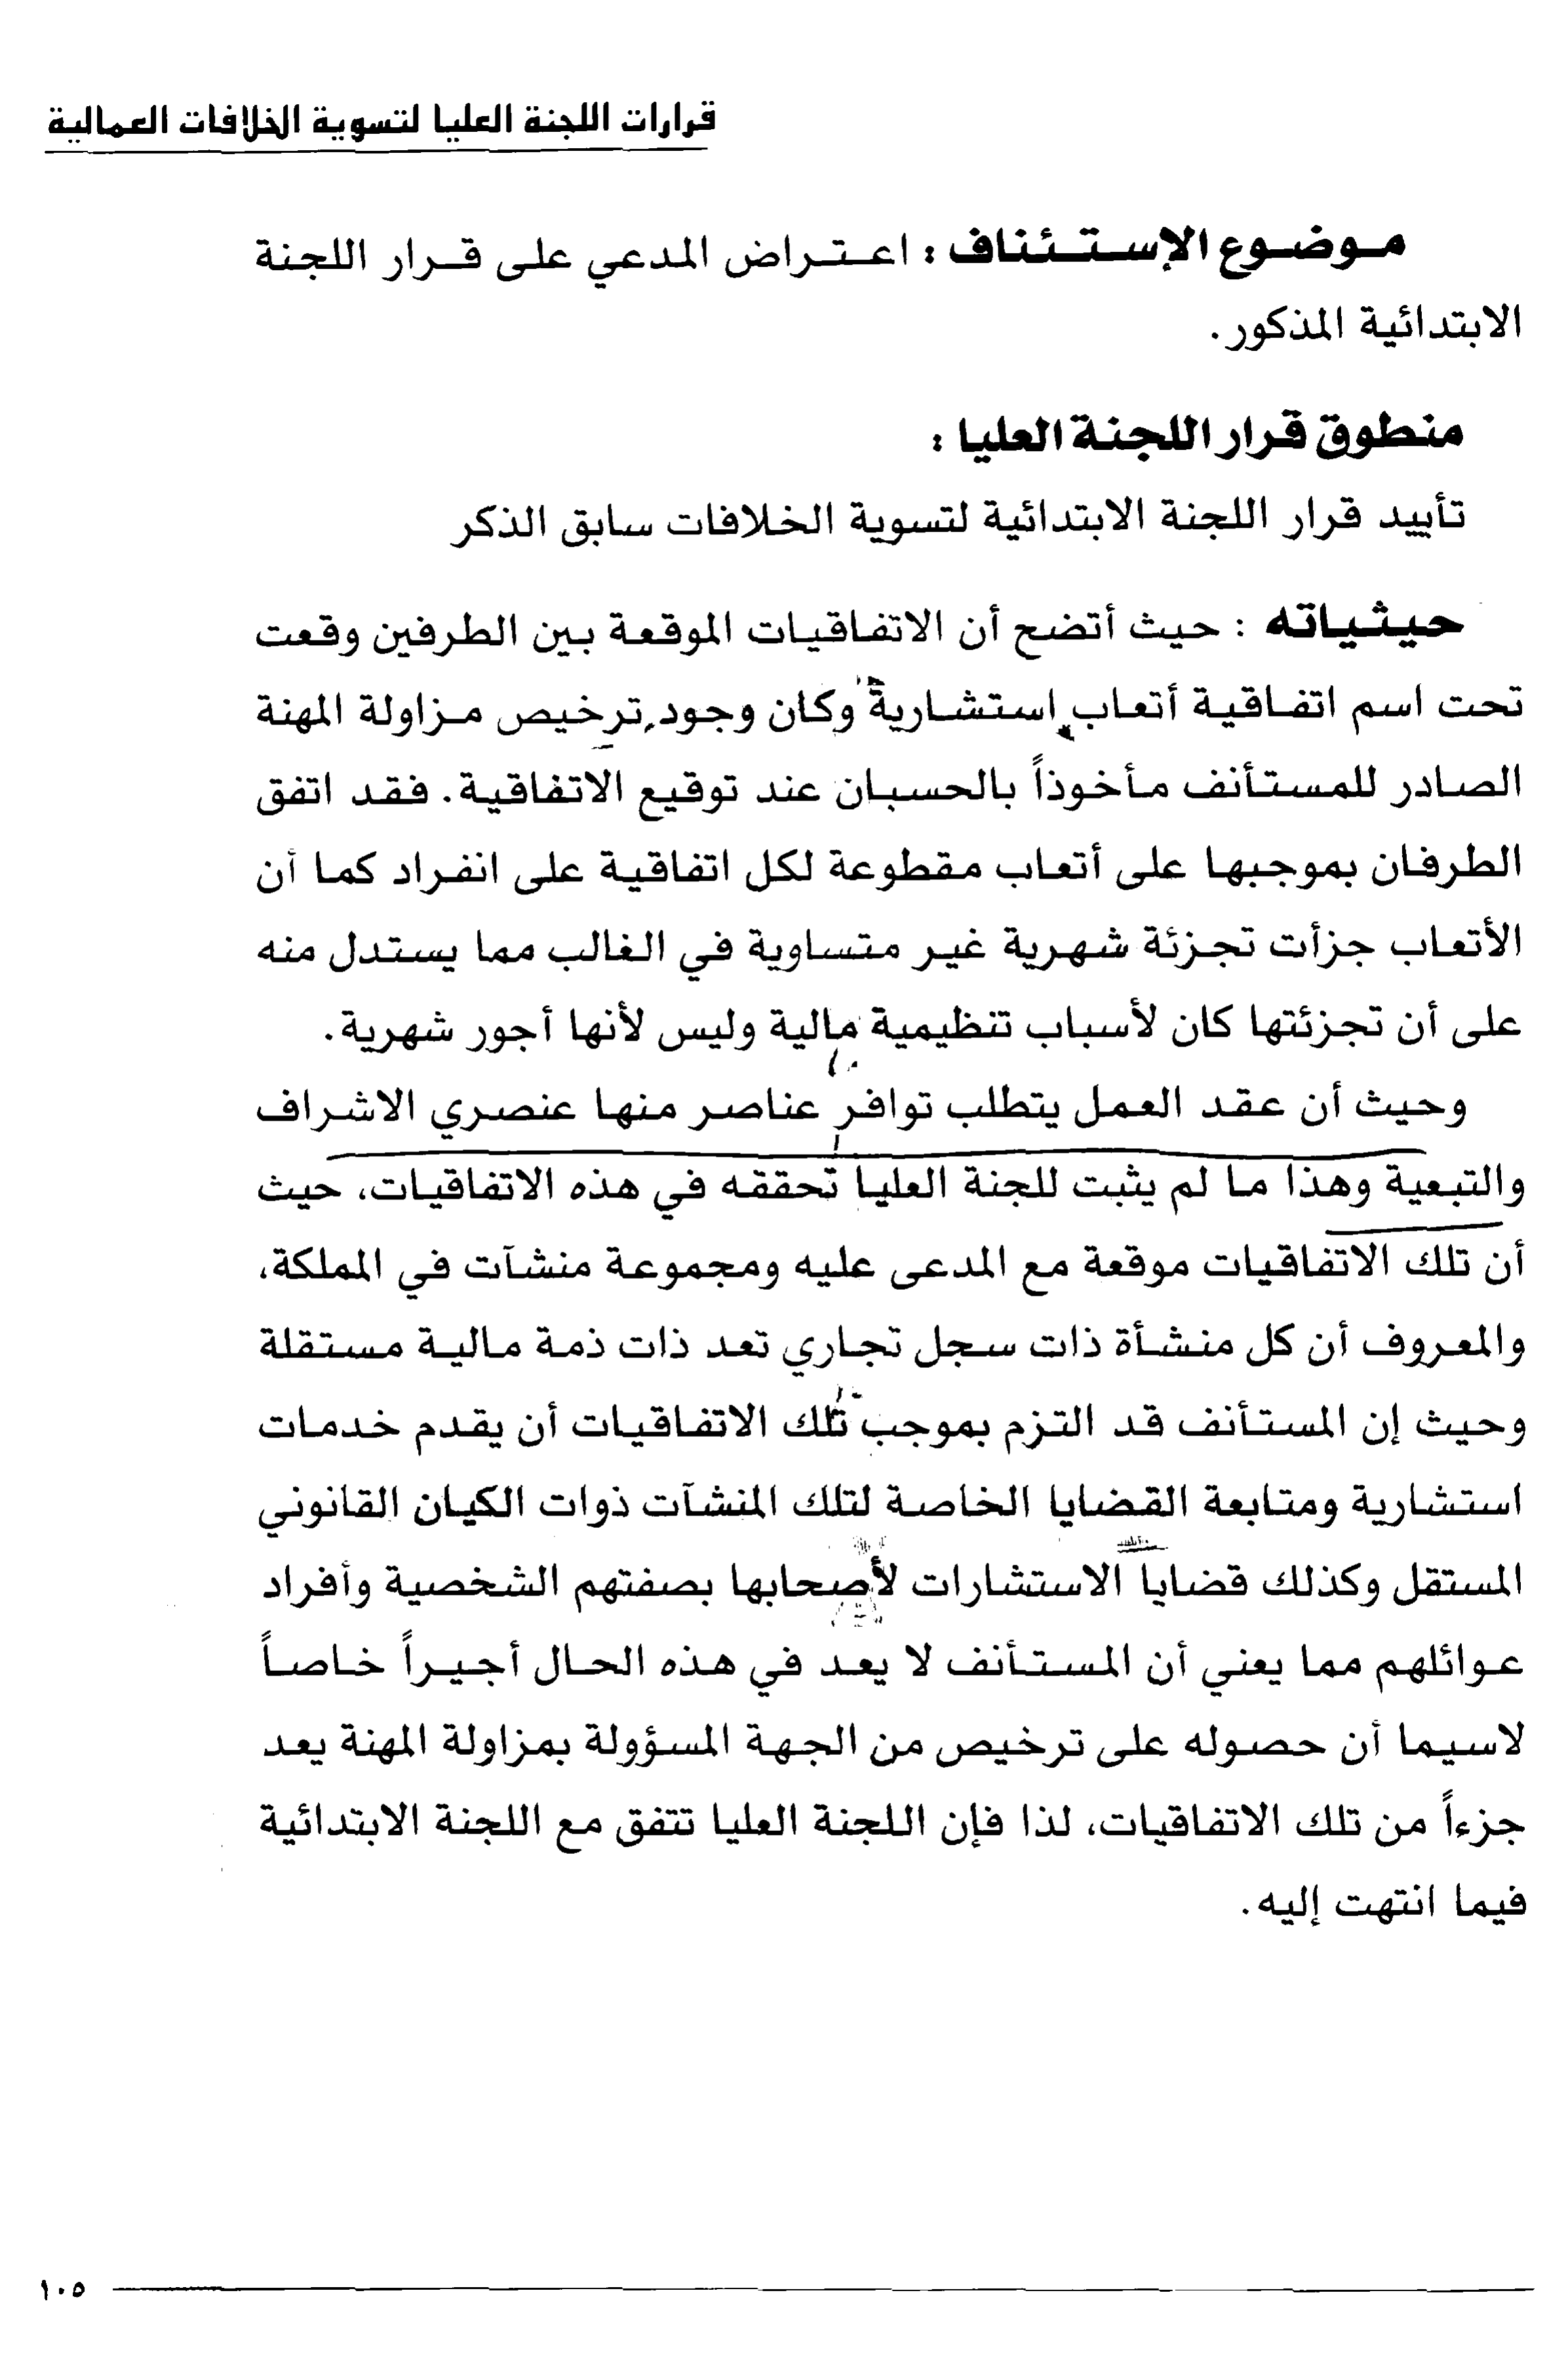 قرارات اللجنة العليا لتسوية الخلافات العمالية
موضوع الإستئناف : اعتراض المدعي على قرار اللجنة
الابتدائية المذكور.
منطوق قرار اللجنة العليا :
تأييد قرار اللجنة الابتدائية لتسوية الخلافات سابق الذكر
حيثياته : حيث أتضح أن الاتفاقيات الموقعة بين الطرفين وقعت
تحت اسم اتفاقية أتعاب استشارية وكان وجود ترخيص مزاولة المهنة
الصادر للمستأنف مأخوذاً بالحسبان عند توقيع الاتفاقية. فقد اتفق
الطرفان بموجبها على أتعاب مقطوعة لكل اتفاقية على انفراد كما أن
الأتعاب جزأت تجزئة شهرية غير متساوية في الغالب مما يستدل منه
على أن تجزئتها كان لأسباب تنظيمية مالية وليس لأنها أجور شهرية.
وحيث أن عقد العمل يتطلب توافر عناصر منها عنصري الاشراف
والتبعية وهذا ما لم يثبت للجنة العليا تحققه في هذه الاتفاقيات، حيث
أن تلك الاتفاقيات موقعة مع المدعى عليه ومجموعة منشآت في المملكة،
والمعروف أن كل منشأة ذات سجل تجاري تعد ذات ذمة مالية مستقلة
وحيث إن المستأنف قد التزم بموجب تلك الاتفاقيات أن يقدم خدمات
استشارية ومتابعة القضايا الخاصة لتلك المنشآت ذوات الكيان القانوني
المستقل وكذلك قضايا الاستشارات لأصحابها بصفتهم الشخصية وأفراد
عوائلهم مما يعني أن المستأنف لا يعد في هذه الحال أجيراً خاصاً
لاسيما أن حصوله على ترخيص من الجهة المسؤولة بمزاولة المهنة يعد
جزءاً من تلك الاتفاقيات، لذا فإن اللجنة العليا تتفق مع اللجنة الابتدائية
فيما انتهت إليه.
١٠٥